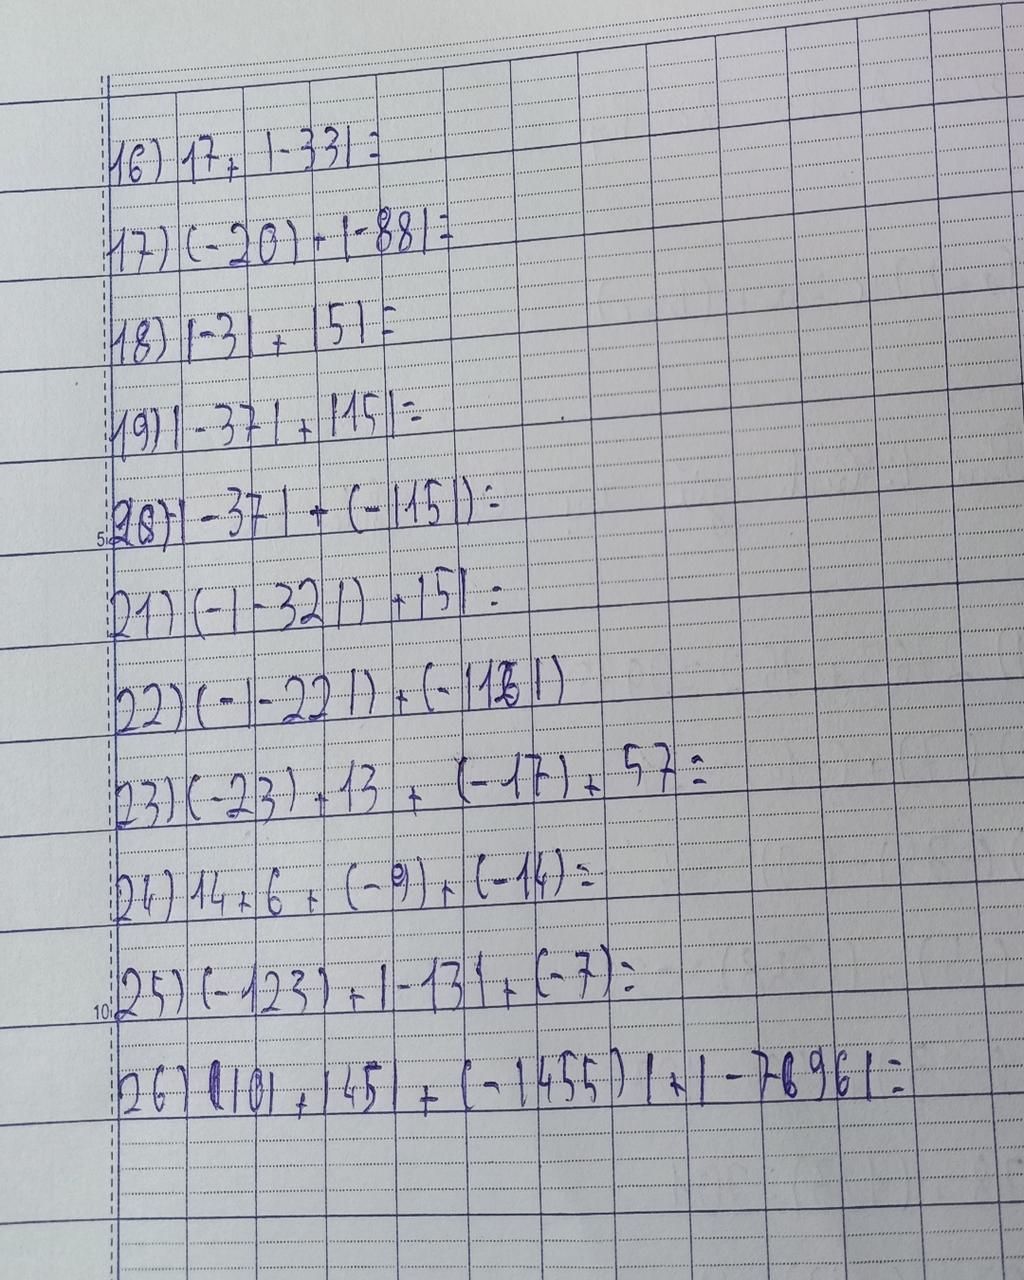 16) 17 + |-33| =
17) (-20) + |-88| =
18) |-3| + |5| =
19) |-37| + |15| =
20) |-37| + (-|15|) =
5
21) (-|-32|) + |5| =
22) (-|-22|) + (-|
23) (-23) + 13 + (-17) + 57 =
24) 14 + 6 + (-9) + (-14) =
25) (-123) + |-13| + (-7) =
10
26) |0| + |45| + (-|455)| + | =